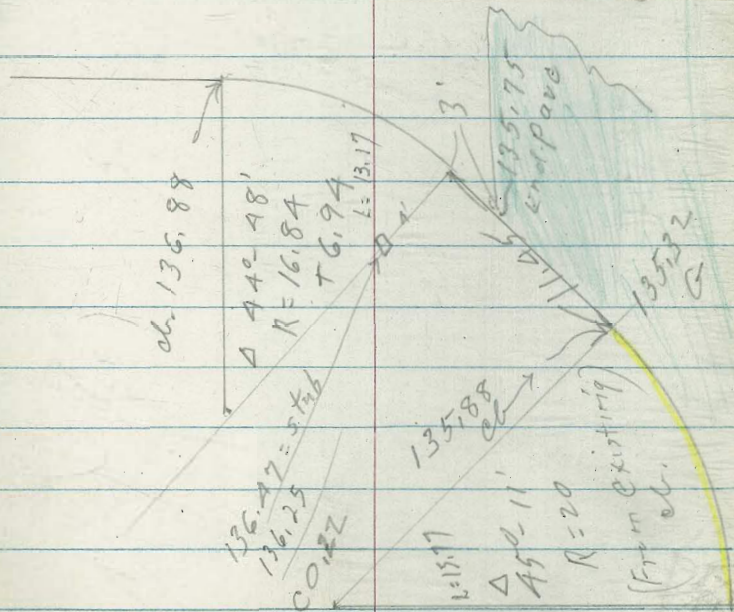 cb. 136.88
Δ 44°-48'
R = 16.84
+ 6.94
L = 13.17
1'
3'
135.75
End pave
11.45
135.32
G
136.47 = stub
136.25
C 0.22
135.88
cb
L=15.77
Δ
45°-11'
R = 20
(From existing)
cb.